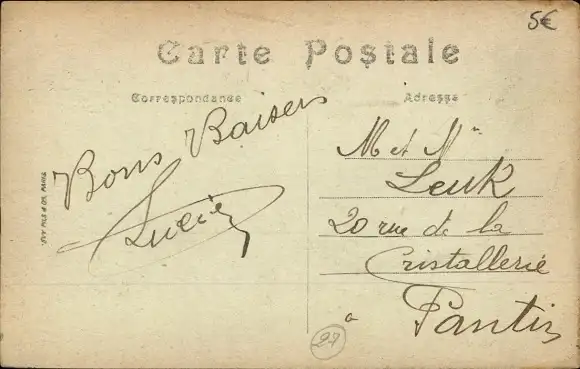 5€
Carte Postale
Correspondance
Adresse
Bons Baisers
Lucien
M et Mme
Leuk
20 rue de la
Cristallerie
à Pantin
27
LÉVY FILS & Cie, PARIS